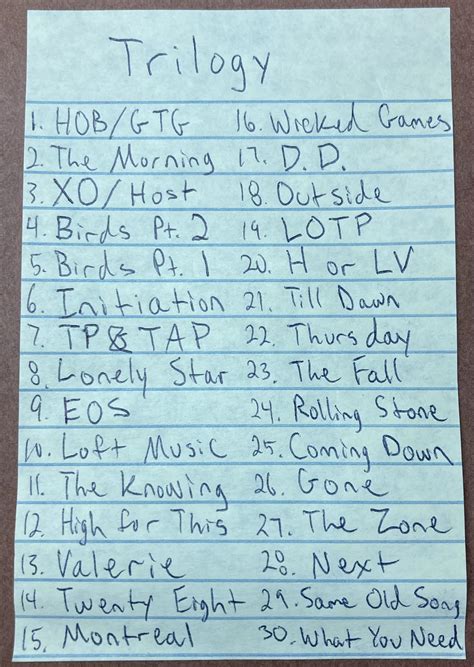 Trilogy
1. HOB/GTG
2. The Morning
3. XO/Host
4. Birds Pt. 2
5. Birds Pt. 1
6. Initiation
7. TP & TAP
8. Lonely Star
9. EOS
10. Loft Music
11. The Knowing
12. High for This
13. Valerie
14. Twenty Eight
15. Montreal
16. Wicked Games
17. D.D.
18. Outside
19. LOTP
20. H or LV
21. Till Dawn
22. Thursday
23. The Fall
24. Rolling Stone
25. Coming Down
26. Gone
27. The Zone
28. Next
29. Same Old Song
30. What You Need